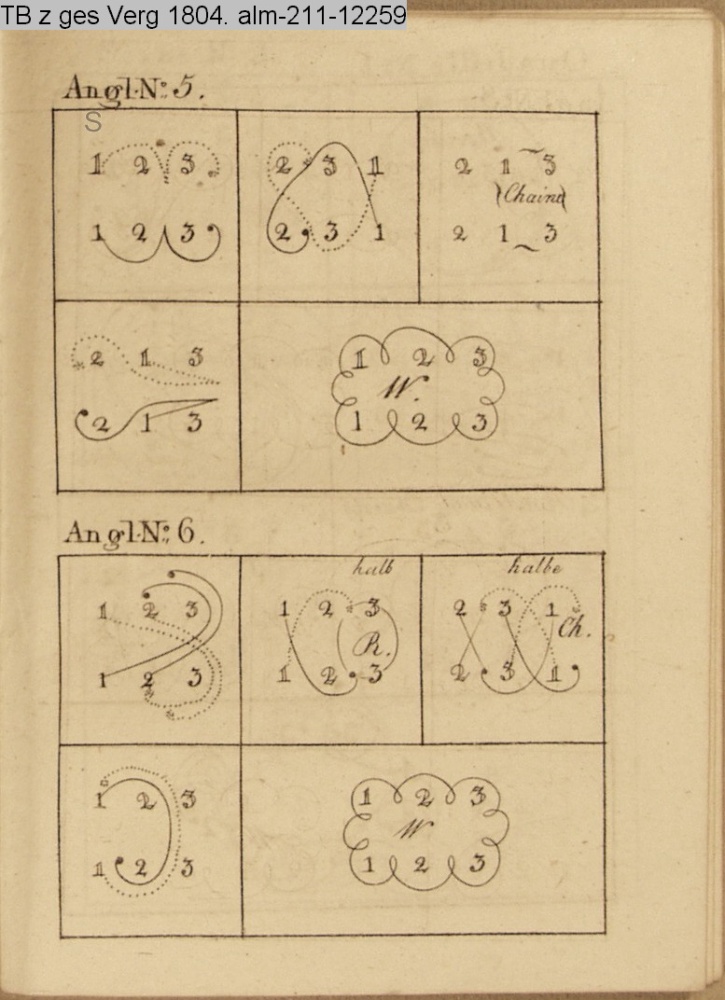 TB z ges Verg 1804. alm-211-12259
Angl. No: 5.
S
1 2 3
1 2 3
2 3 1
2 3 1
2 1 3
Chaine
2 1 3
2 1 3
2 1 3
1 2 3
W.
1 2 3
Angl. No: 6.
1 2 3
1 2 3
halb
1 2 3
R.
1 2 3
halbe
2 3 1
Ch.
2 3 1
1 2 3
1 2 3
1 2 3
W
1 2 3